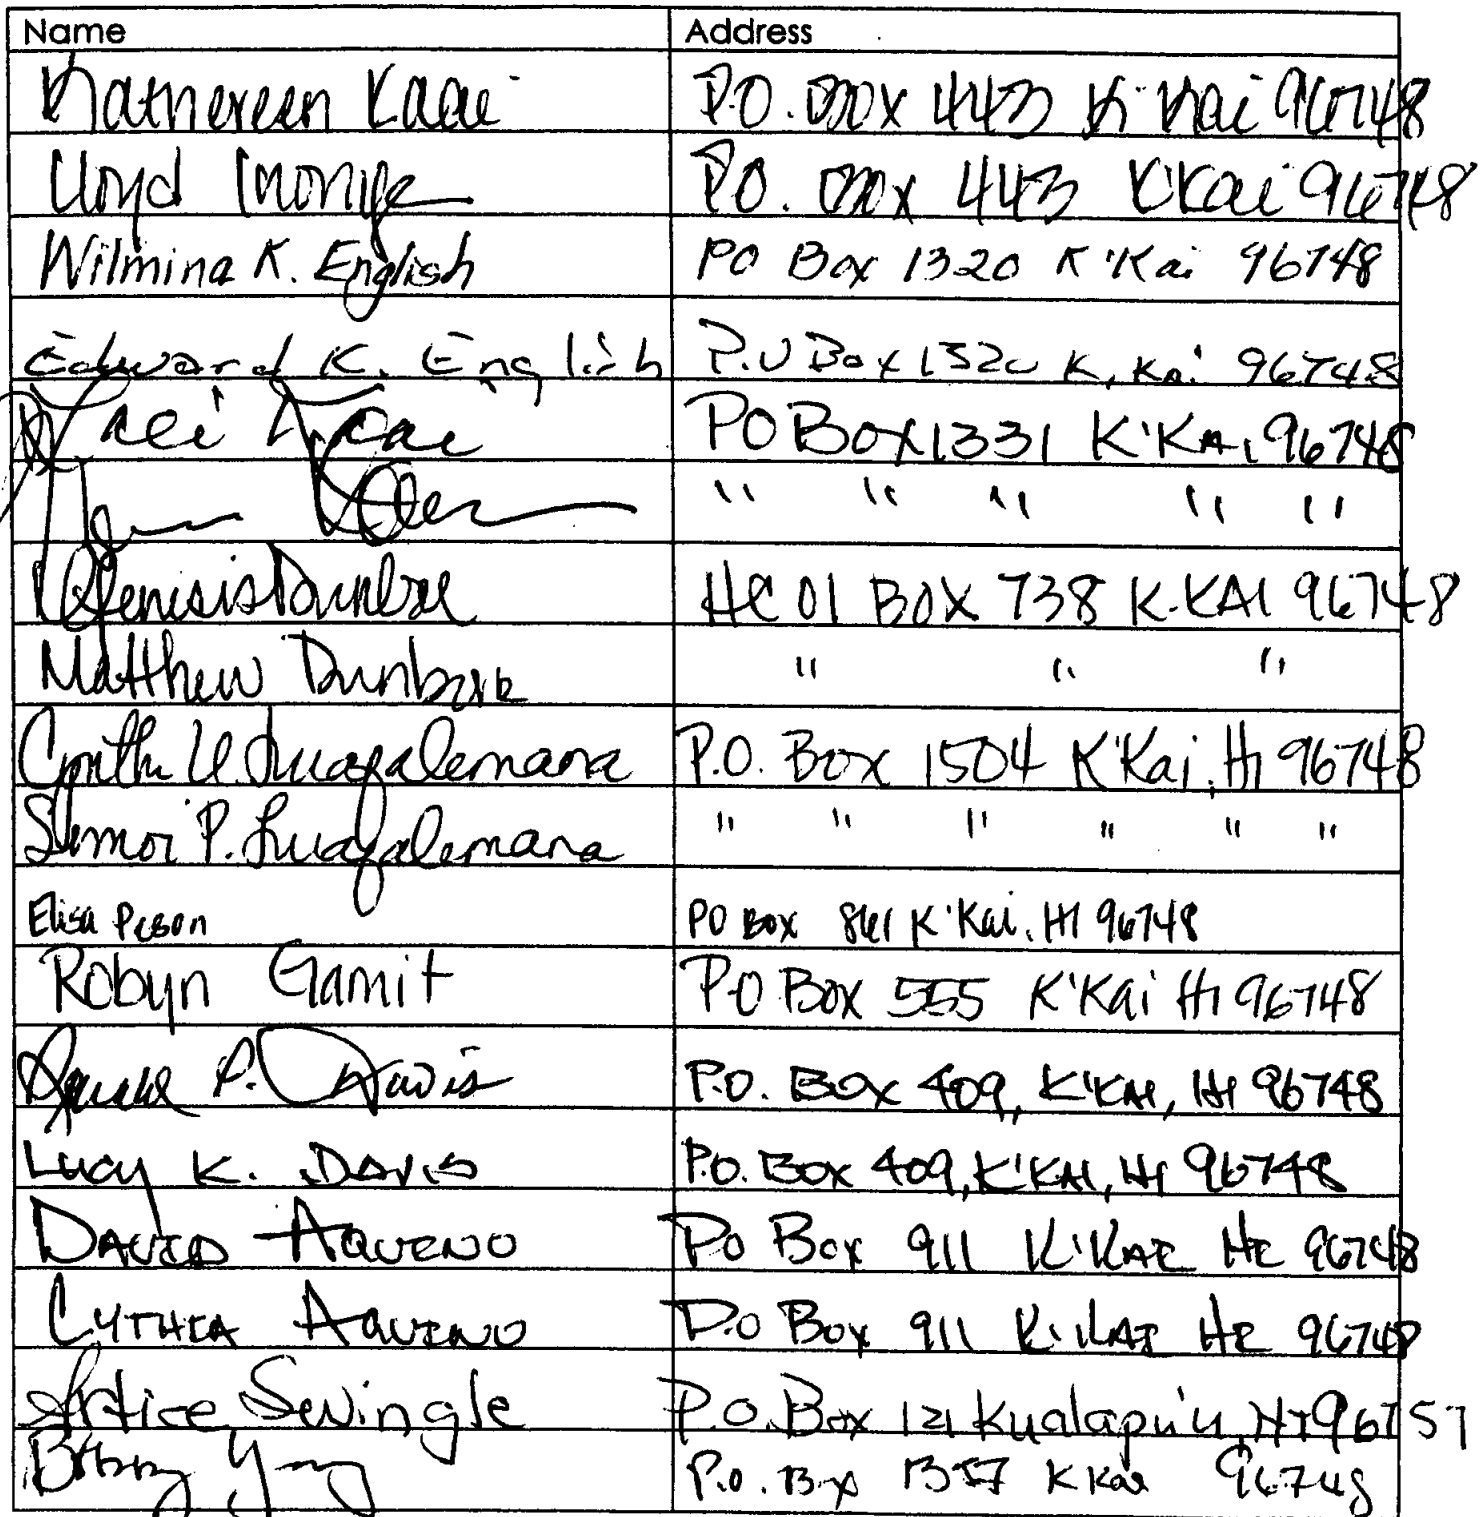 Name Address
Kathereen Kaai P.O. Box 443 K'Kai 96748
Lloyd Inouye P.O. Box 443 K'Kai 96748
Wilmina K. English PO Box 1320 K'Kai 96748
Edward K. English P.O Box 1320 K,Kai 96748
PO Box 1331 K'KAI 96748
" " " " "
Genesis Dunbar HC 01 BOX 738 K-KAI 96748
Matthew Dunbar " " "
U. Luafalemana P.O. Box 1504 K'Kai, HI 96748
P. Luafalemana " " " " " "
Elisa Peson PO BOX 861 K'Kai, HI 96748
Robyn Gamit P.O Box 555 K'Kai HI 96748
P. Davis P.O. Box 409, K'KAI, HI 96748
Lucy K. Davis P.O. Box 409, K'KAI, HI 96748
DAVID AQUINO PO Box 911 K'KAI HI 96748
CYTHIA AQUINO P.O Box 911 K'KAI HI 96748
Artice Swingle P.O. Box 121 Kualapu'u, HI 96757
Young P.O. Box 1357 K Kai 96748